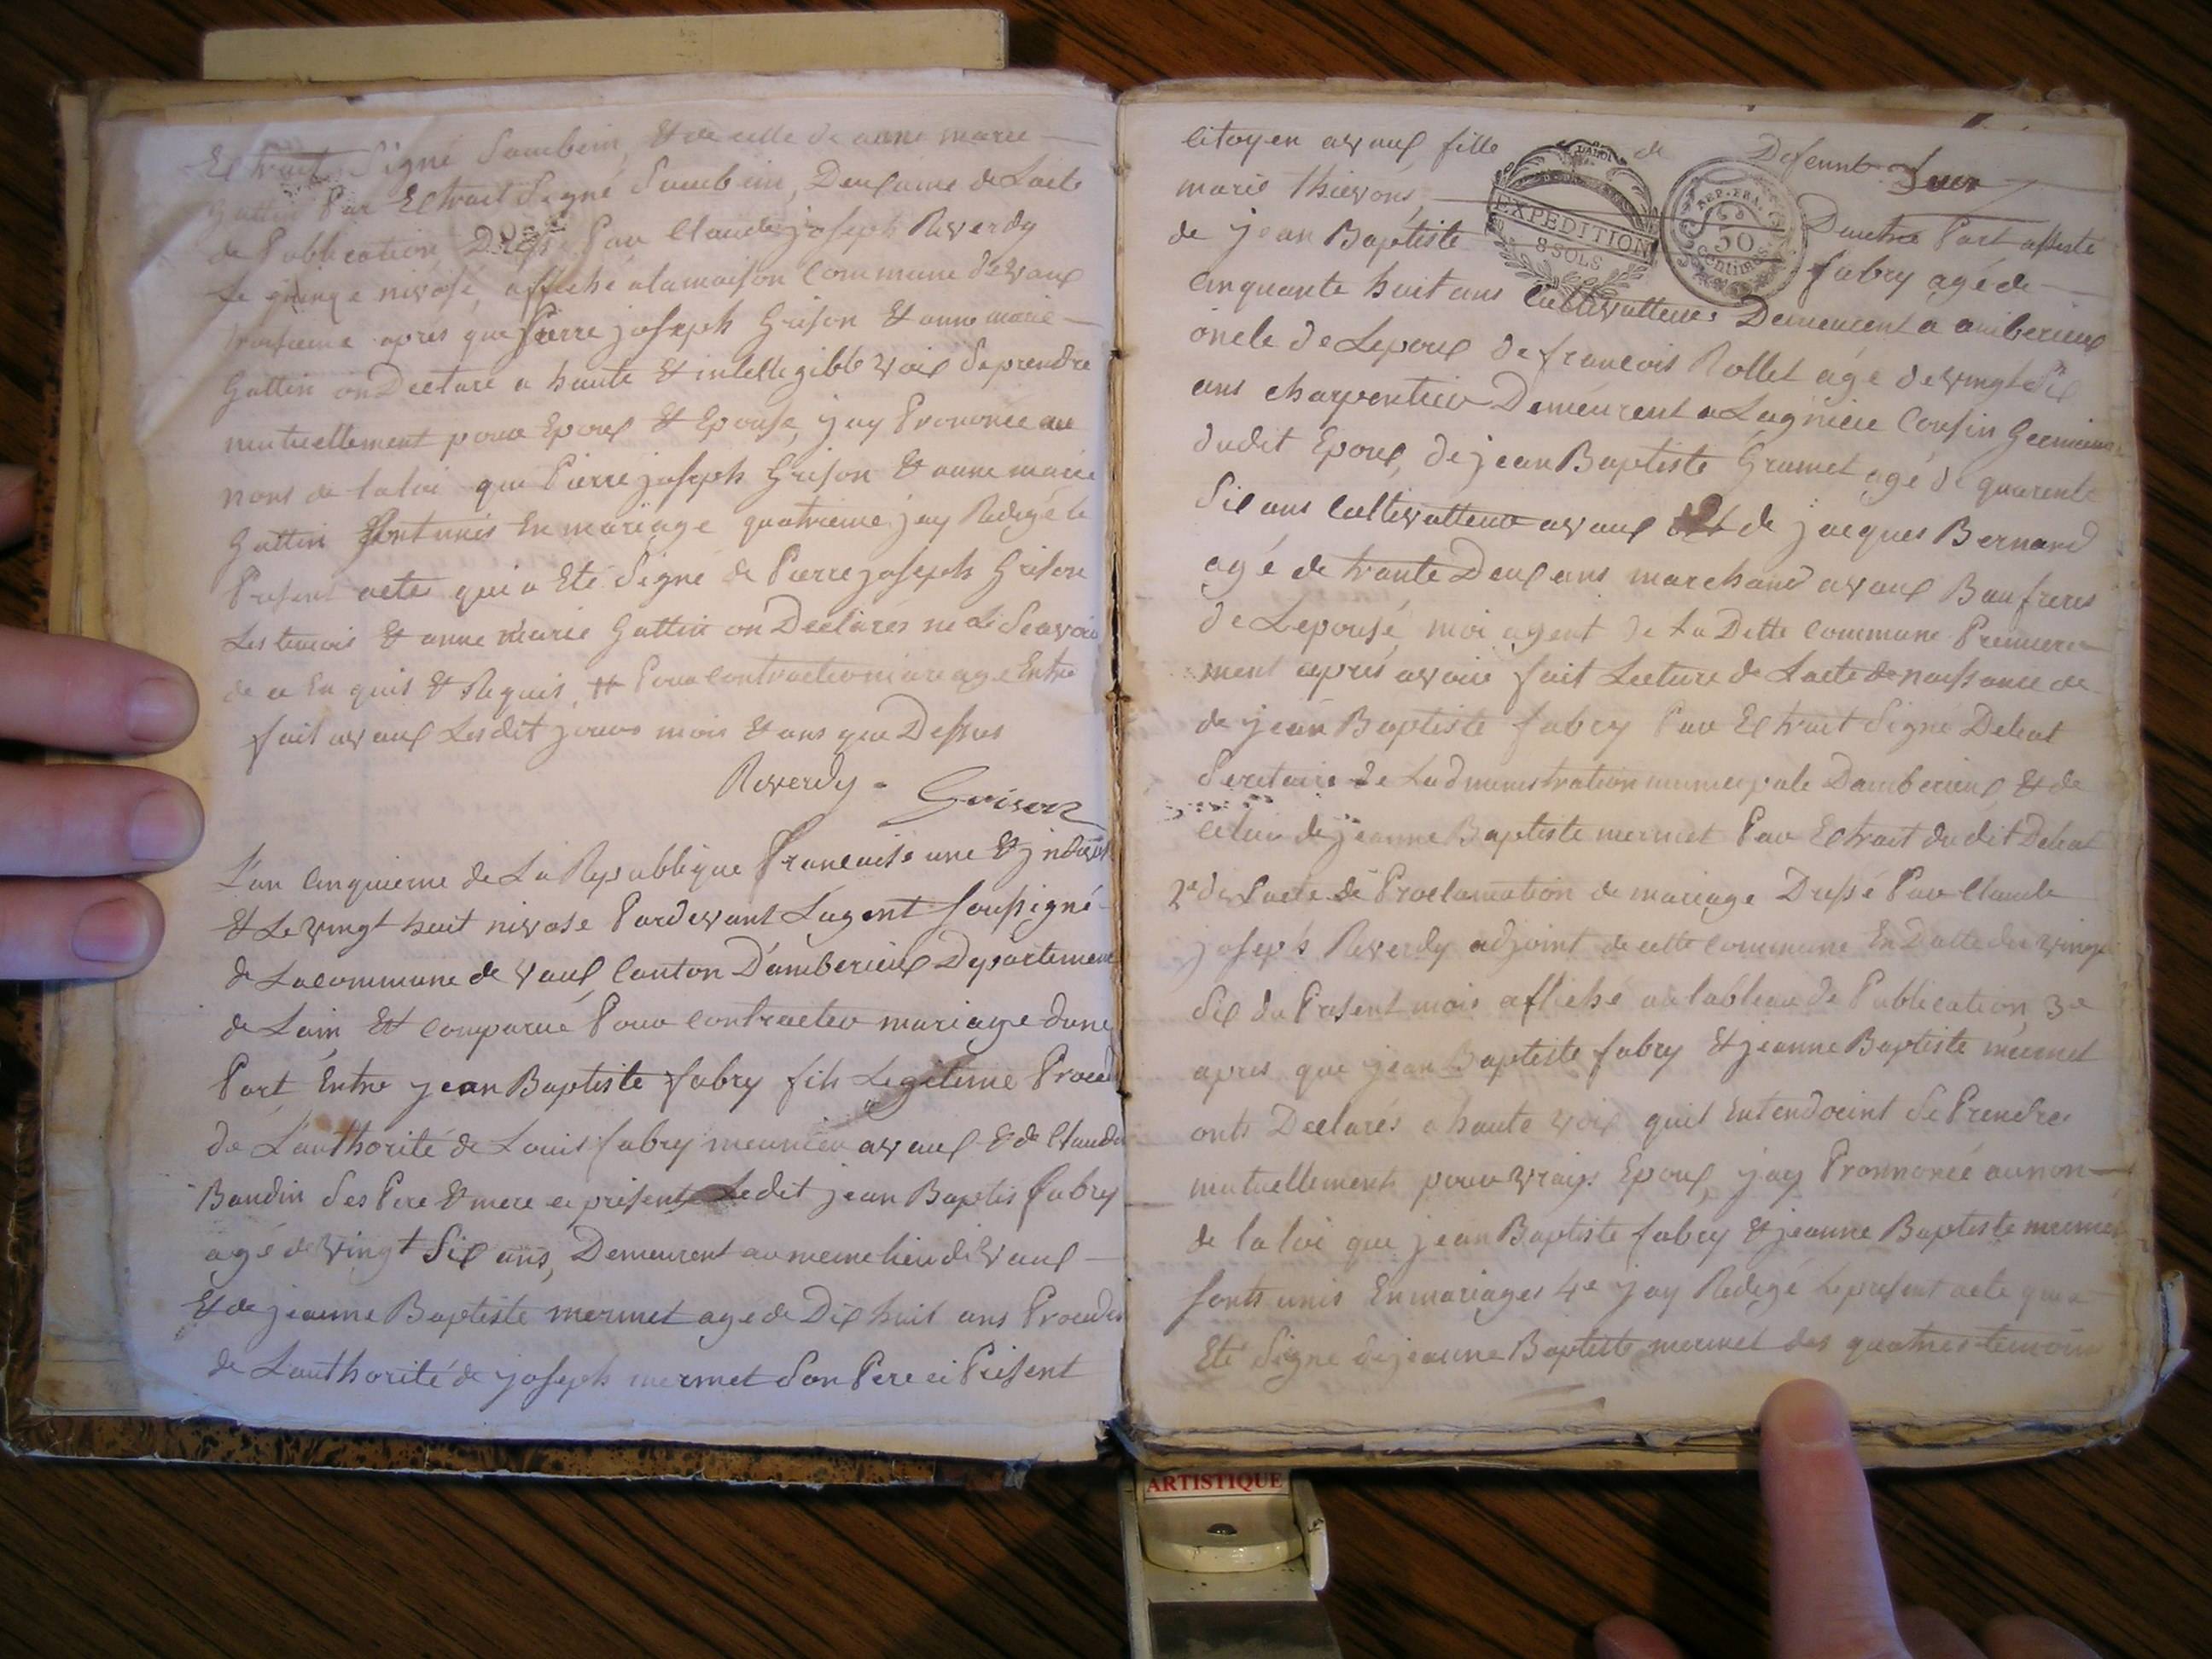 Extrait Signé Sambein, Et de celle de anne marie
Guttin Par Extrait Signé Sambein, Deuxieme de Lacte
de Publication Dressé Par Claude joseph Reverdy
Le quinze nivose, affiché a la maison Commune de vaux
troisieme apres que Pierre joseph Grison & anne marie
Guttin on Declaré a haute & intelligible voix se prendre
mutuellement pour Epoux & Epouse, jay Prononcé au
nons de la loi que Pierre joseph Grison & anne marie
Guttin sont unis En mariage quatrieme jay Redigé le
Present acte qui a Eté Signé de Pierre joseph Grison
Les temois & anne marie Guttin on Declarés ne Le Scavoir
de ce En quis & Requis, # Pour Contracter mariage Entre
fait a vaux Lesdit jours mois & ans que Dessus
Reverdy - Grison
L'an Cinquieme de La Republique Francaise une & jndivis
& Le vingt huit nivose Pardevant Lagent soussigné
de La commune de vaux Canton Dambérieux Departement
de Lain Et Comparue Pour Contracter mariage dune
Part Entre jean Baptiste fabry fils Legitime Procéd
de L'authorité de Louis fabry meunier a vaux & de Claudi
Baudin Ses Pere & mere ci présents Ledit jean Baptis fabry
agé de vingt Six ans, Demeurent au meme lieu de vaux
Et de jeanne Baptiste mermet age de Dix huit ans Procéden
de Lauthorité de joseph mermet Son Pere ci Présent
Citoyen a vaux fille de Defeunt
marie thievons, Dautre Part assisté
de jean Baptiste fabry agé de
Cinquante huit ans Cultivatteur Demeurent a ambérieux
oncle de Lepoux de francois Rollet agé de vingt Six
ans charpentier Demeurent a Lagnieu Cousin Germain
dudit Epoux, de jean Baptiste Gramet agé de quarente
Six ans Cultivatteur a vaux Et de jacques Bernard
agé de trante Deux ans marchand a vaux Baufreres
de Lepousé, moi agent de La Ditte Commune Premiere
ment apres avoir fait Lecture de Lacte de naissance de
de jean Baptiste fabry Par Extrait Signé Debeat
Secretaire de Ladministration municipale Dambérieux & de
Celui de jeanne Baptiste mermet Par Extrait du dit Debeat
2e de Lacte de Proclamation de mariage Dressé Par Claude
joseph Reverdy adjoint de cette Commune En Datte du vingt
Six du Présent mois affiché au tableau de Publication 3e
apres que jean Baptiste fabry & jeanne Baptiste mermet
onts Declarés a haute voix quil Entendoient Se Prendre
mutuellements pour vrays Epoux, jay Pronnoncé au non
de la loi que jean Baptiste fabry & jeanne Baptiste mermet
sonts unis En mariages 4e jay Redigé le present acte qui a
Eté Signé de jeanne Baptiste mermet des quatres temoins
EXPEDITION
8 SOLS
REP. FRA.
50
Centimes
ARTISTIQUE